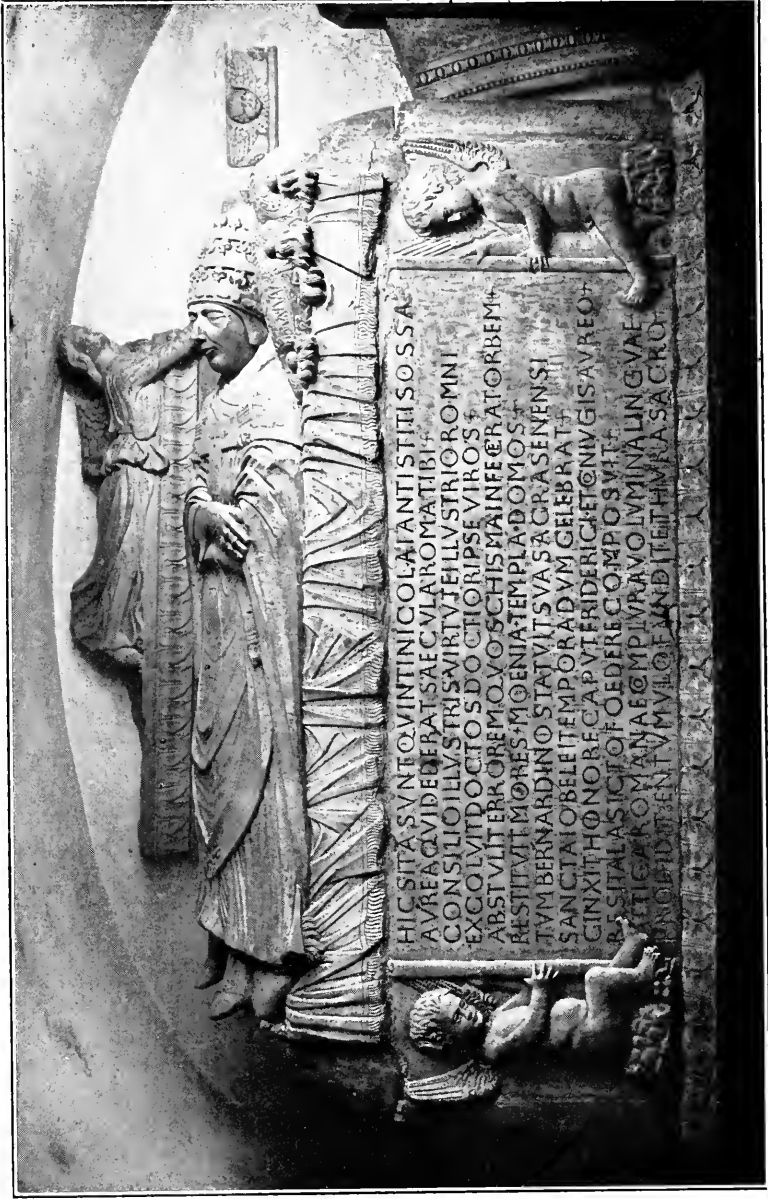 HIC SITA SVNT QVINTI NICOLAI ANTISTITIS OSSA
AVREA QVI DEDERAT SAECVLA ROMA TIBI+
CONSILIO ILLVSTRIS VIRTVTE ILLVSTRIOR OMNI
EXCOLVIT DOCTOS DOCTIOR IPSE VIROS+
ABSTVLIT ERROREM QVO SCHISMA INFECERAT ORBEM+
RESTITVIT MORES+MOENIA TEMPLA DOMOS+
TVM BERNARDINO STATVIT SVA SACRA SENENSI
SANCTA IOBELEI TEMPORA DVM CELEBRAT+
CINXIT HONORE CAPVT FRIDERICI ET CONIVGIS AVREO+
RES ITALAS ICTO FOEDERE COMPOSVIT+
ATTICA ROMANAE COMPLVRA VOLVMINA LINGVAE
PRODIDIT EN TVMVLO FVNDITE THVRA SACRO+